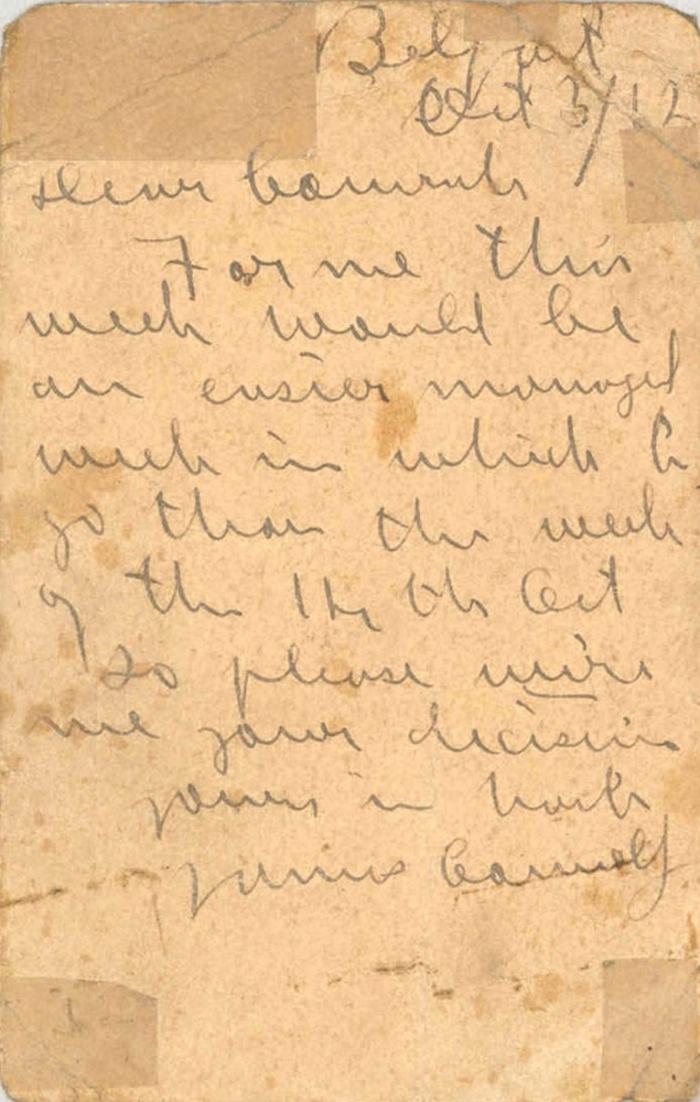 Belfast
Oct 3/12
Dear Comrade
For me this
week would be
an easier managed
week in which to
go than the week
of the 14th Oct
So please wire
me your decision
yours in haste
James Connolly